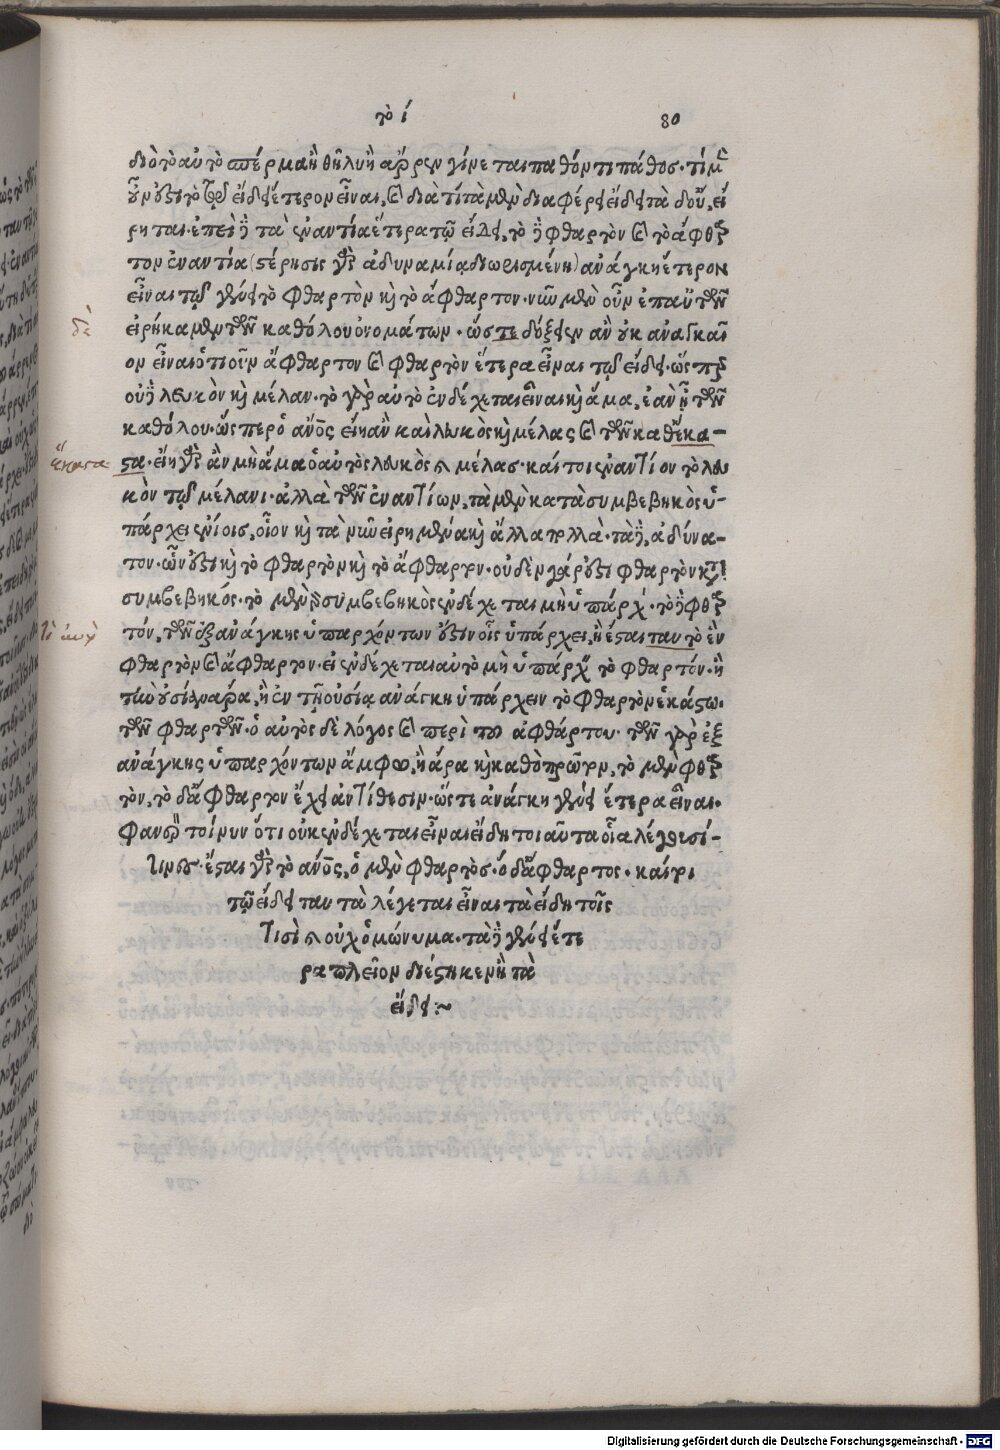 τὸ ί 80
διὸ τὸ αὐτὸ σπέρμα ἢ θῆλυ ἢ ἄρρεν γίνεται παθόν τι πάθος. τί μὲν
οὖν ἐστι τὸ τῷ εἴδει ἕτερον εἶναι, καὶ διατί τὰ μὲν διαφέρει εἴδει τὰ δ᾽ οὔ, εἴ
ρηται. ἐπεὶ δὲ τὰ ἐναντία ἕτερα τῷ εἴδει, τὸ δὲ φθαρτὸν καὶ τὸ ἄφθαρ
τον ἐναντία (στέρησις γὰρ ἀδυναμία διωρισμένη) ἀνάγκη ἕτερον
εἶναι τῷ γένει τὸ φθαρτὸν καὶ τὸ ἄφθαρτον. νῦν μὲν οὖν ἐπ᾽ αὐτῶν
εἰρήκαμεν τῶν καθόλου ὀνομάτων. ὥστε δόξειεν ἂν οὐκ ἀναγκαῖ
ον εἶναι ὁτιοῦν ἄφθαρτον καὶ φθαρτὸν ἕτερα εἶναι τῷ εἴδει. ὥσπερ
οὐδὲ λευκὸν καὶ μέλαν. τὸ γὰρ αὐτὸ ἐνδέχεται εἶναι καὶ ἅμα, ἐὰν ᾖ τῶν
καθόλου. ὥσπερ ὁ ἄνος εἴη ἂν καὶ λευκὸς καὶ μέλας καὶ τῶν καθ᾽ ἕκα-
στα. εἴη γὰρ ἂν μὴ ἅμα ὁ αὐτὸς λευκὸς καὶ μέλας. καίτοι ἐναντίον τὸ λευ
κὸν τῷ μέλανι. ἀλλὰ τῶν ἐναντίων, τὰ μὲν κατὰ συμβεβηκὸς ὑ-
πάρχει ἐνίοις, οἷον καὶ τὰ νῦν εἰρημένα καὶ ἄλλα πολλά. τὰ δὲ, ἀδύνα-
τον. ὧν ἐστι καὶ τὸ φθαρτὸν καὶ τὸ ἄφθαρτον. οὐδὲν γάρ ἐστι φθαρτὸν κατὰ
συμβεβηκός. τὸ μὲν γὰρ συμβεβηκὸς ἐνδέχεται μὴ ὑπάρχειν. τὸ δὲ φθαρ
τόν, τῶν ἐξ ἀνάγκης ὑπαρχόντων ἐστὶν οἷς ὑπάρχει, ἢ ἔσται ταυτὸ ἓν
φθαρτὸν καὶ ἄφθαρτον. εἰ ἐνδέχεται αὐτὸ μὴ ὑπάρχειν τὸ φθαρτόν. ἢ
τὴν οὐσίαν ἄρα, ἢ ἐν τῇ οὐσίᾳ ἀνάγκη ὑπάρχειν τὸ φθαρτὸν ἑκάστῳ.
τῶν φθαρτῶν. ὁ αὐτὸς δὲ λόγος καὶ περὶ τοῦ ἀφθάρτου. τῶν γὰρ ἐξ
ἀνάγκης ὑπαρχόντων ἄμφω, ᾗ ἄρα καὶ καθὸ πρῶτον, τὸ μὲν φθαρ
τὸν, τὸ δ᾽ ἄφθαρτον ἔχει ἀντίθεσιν. ὥστε ἀνάγκη γένει ἕτερα εἶναι.
φανερὸν τοίνυν ὅτι οὐκ ἐνδέχεται εἶναι εἴδη τοιαῦτα οἷα λέγουσί-
τινες. ἔσται γὰρ τὸ ἄνος, ὁ μὲν φθαρτὸς. ὁ δ᾽ ἄφθαρτος. καίτοι
τῷ εἴδει ταυτὰ λέγεται εἶναι τὰ εἴδη τοῖς
τισὶ καὶ οὐχ ὁμώνυμα. τὰ δὲ γένει ἕτε
ρα πλεῖον διέστηκεν ἢ τὰ
εἴδει:~
δὲ
ἕκαστα
Digitalisierung gefördert durch die Deutsche Forschungsgemeinschaft - DFG